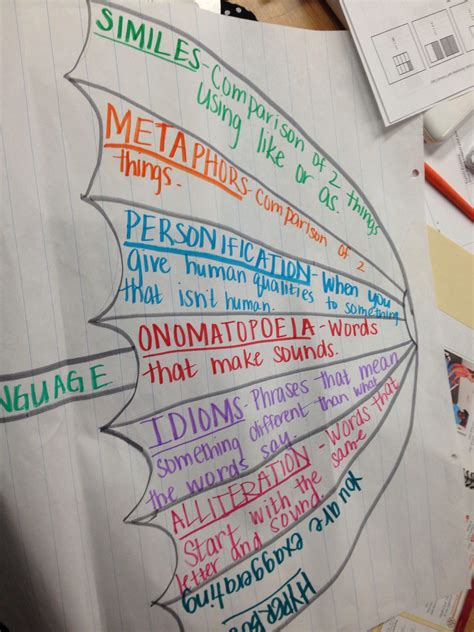 SIMILES-Comparison of 2 things
using like or as.
METAPHORS-Comparison of 2
things.
PERSONIFICATION-When you
give human qualities to something
that isn't human.
ONOMATOPOEIA-Words
that make sounds.
NGUAGE
IDIOMS-Phrases that mean
something different than what
the words say.
ALLITERATION-Words that
start with the same
letter and sound.
HYPERBO
You are exaggerating